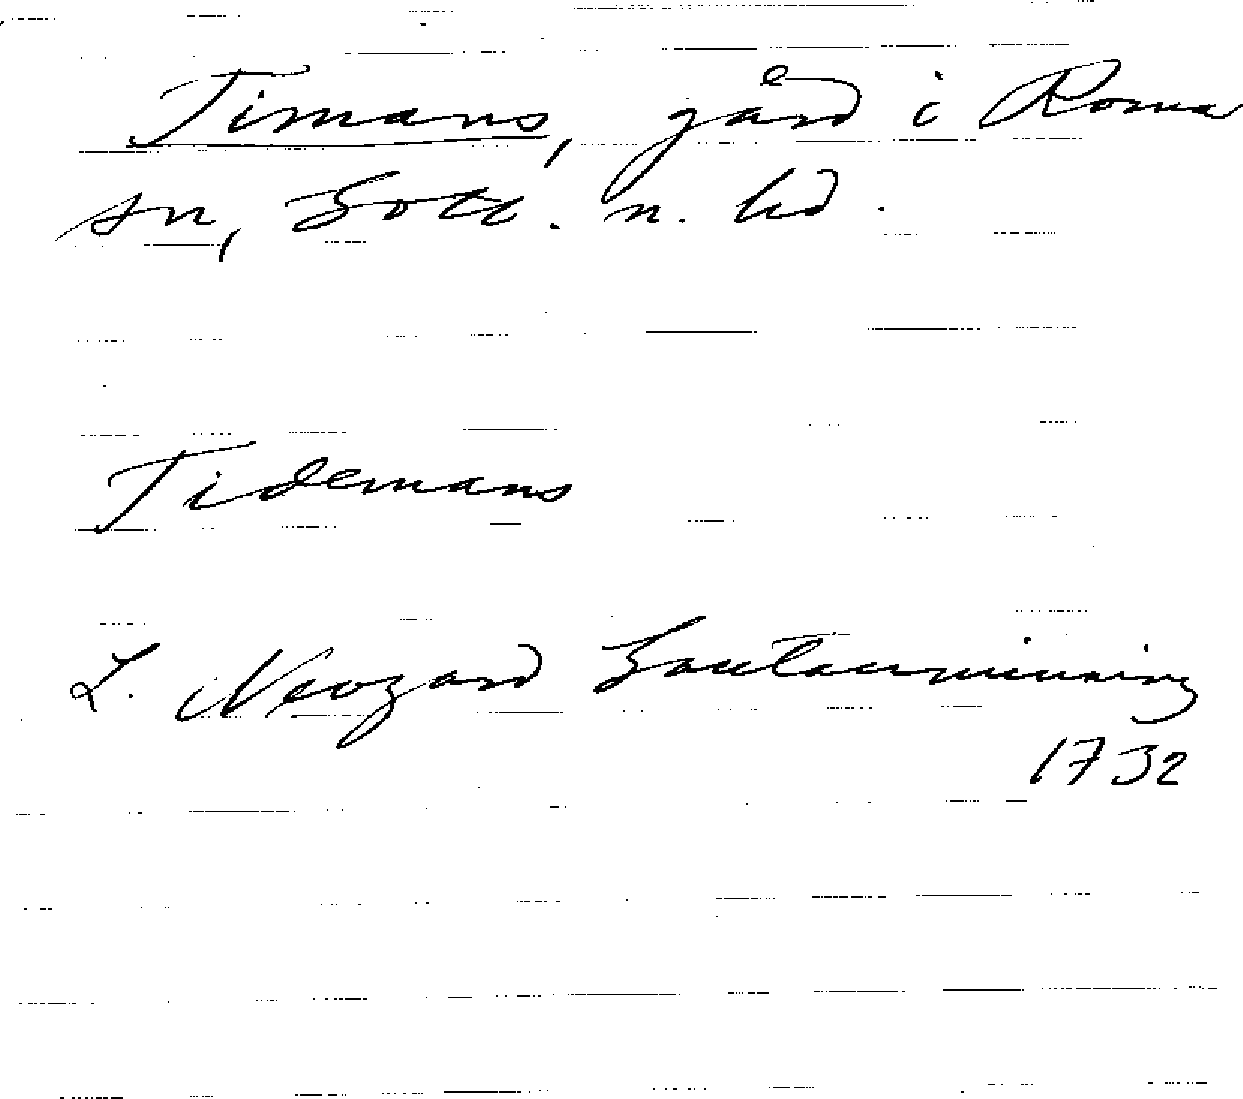 Timans, gård i Roma
sn, Gotl. n. hd.
Tidemans
L. Neogard Gautauminning
1732